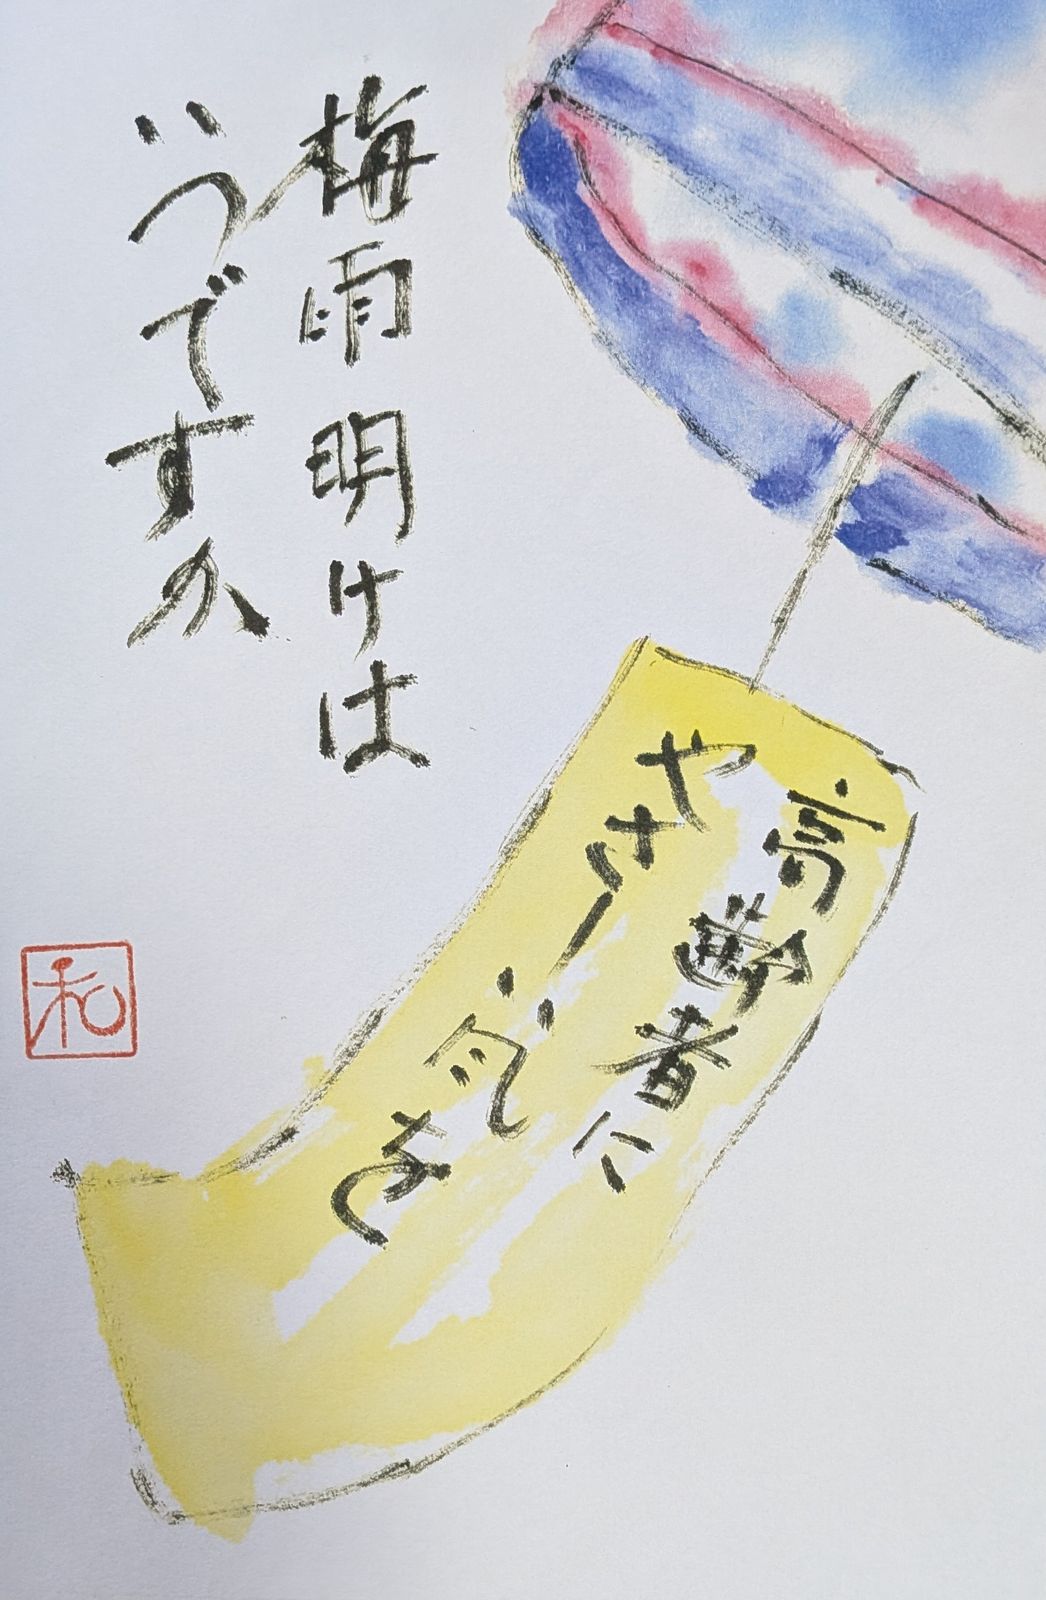 梅雨明けは
いつですか
高齢者に
やさしい風を
和